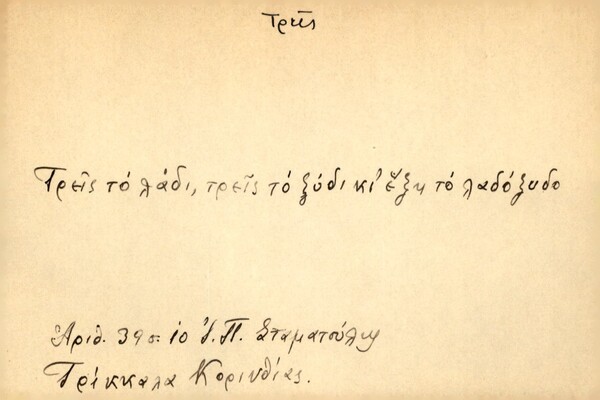 Τρεῖς
Τρεῖς τό λάδι, τρεῖς τό ξύδι κι' ἕξη τό λαδόξυδο
Ἀριθ. 39 σ. 10 Ἰ. Π. Σταματούλης
Τρίκκαλα Κορινθίας.